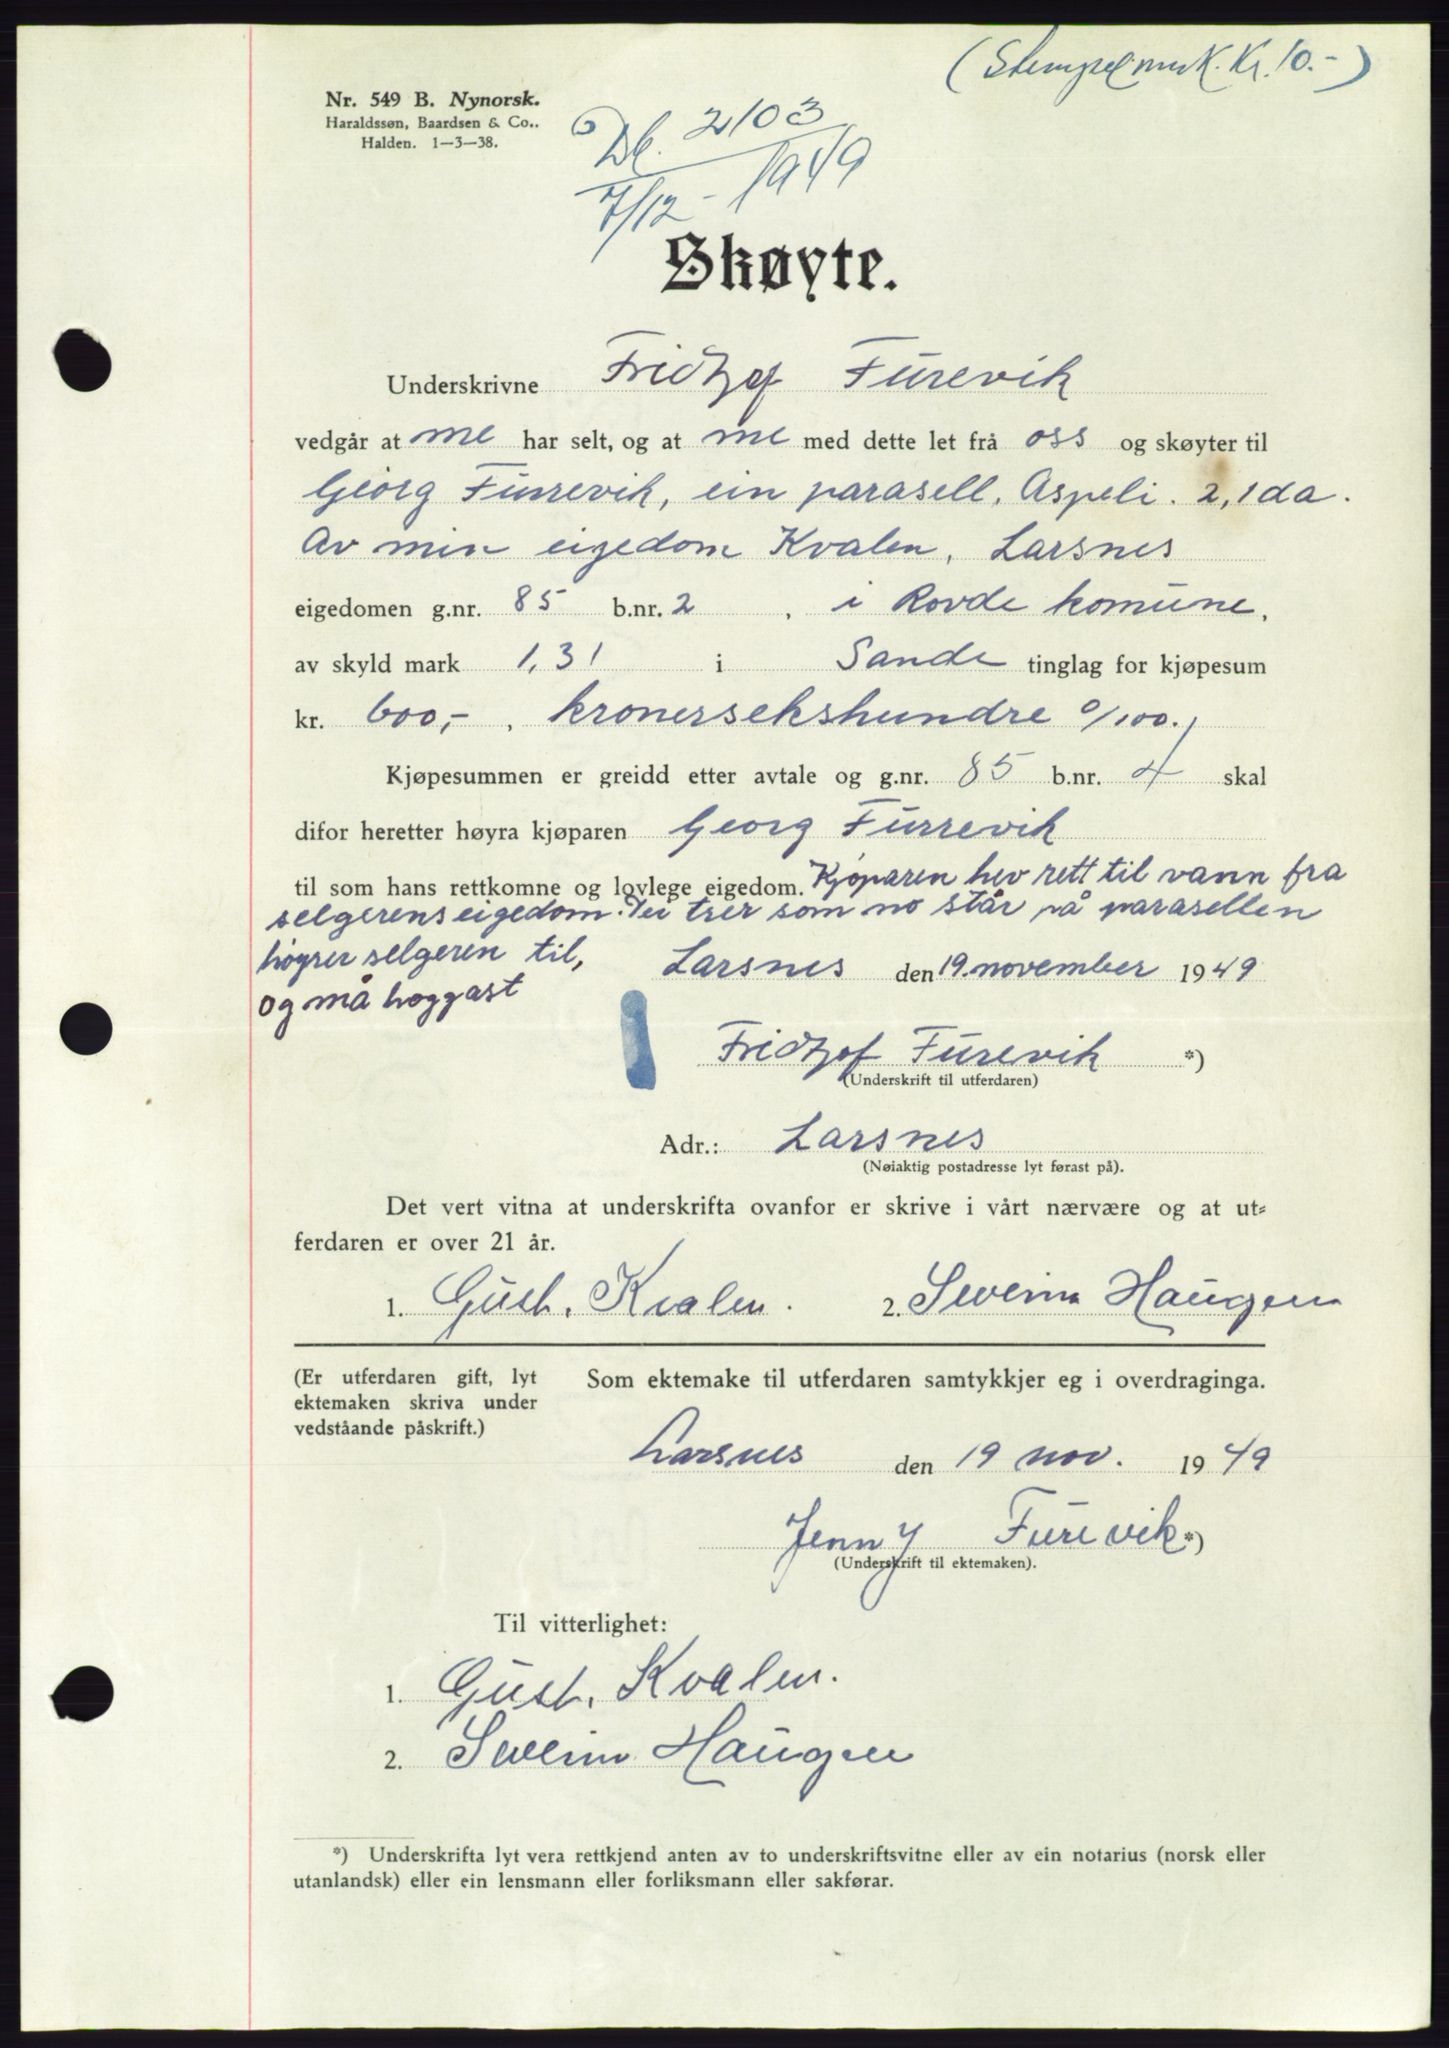 (Stempelmerk. Kr. 10.-)
Nr. 549 B. Nynorsk.
Haraldssøn, Baardsen & Co..
Halden. 1—3—38.
Db. 2103
7/12 - 1949
Skøyte.
Underskrivne Fridtjof Furevik
vedgår at me har selt, og at me med dette let frå oss og skøyter til
Georg Furrevik, ein parasell, Aspeli. 2,1 da.
Av min eigedom Kvalen, Larsnes
eigedomen g.nr. 85 b.nr. 2, i Rovde komune,
av skyld mark 1,31 i Sande tinglag for kjøpesum
kr. 600,-, kronersekshundre 0/100.
Kjøpesummen er greidd etter avtale og g.nr. 85 b.nr. 4 skal
difor heretter høyra kjøparen Georg Furrevik
til som hans rettkomne og lovlege eigedom. Kjøparen hev rett til vann fra
selgerens eigedom. Dei trer som no står på parasellen
høyrer selgeren til,
og må hoggast
Larsnes den 19. november 1949
Fridtjof Furevik *)
(Underskrift til utferdaren)
Adr.: Larsnes
(Nøiaktig postadresse lyt førast på).
Det vert vitna at underskrifta ovanfor er skrive i vårt nærvære og at ut-
ferdaren er over 21 år.
1. Gust. Kvalen. 2. Severin Haugen
(Er utferdaren gift, lyt
ektemaken skriva under
vedståande påskrift.)
Som ektemake til utferdaren samtykkjer eg i overdraginga.
Larsnes den 19 nov. 1949
Jenny Furevik *)
(Underskrift til ektemaken).
Til vitterlighet:
1. Gust. Kvalen.
2. Severin Haugen
*) Underskrifta lyt vera rettkjend anten av to underskriftsvitne eller av ein notarius (norsk eller
utanlandsk) eller ein lensmann eller forliksmann eller sakførar.